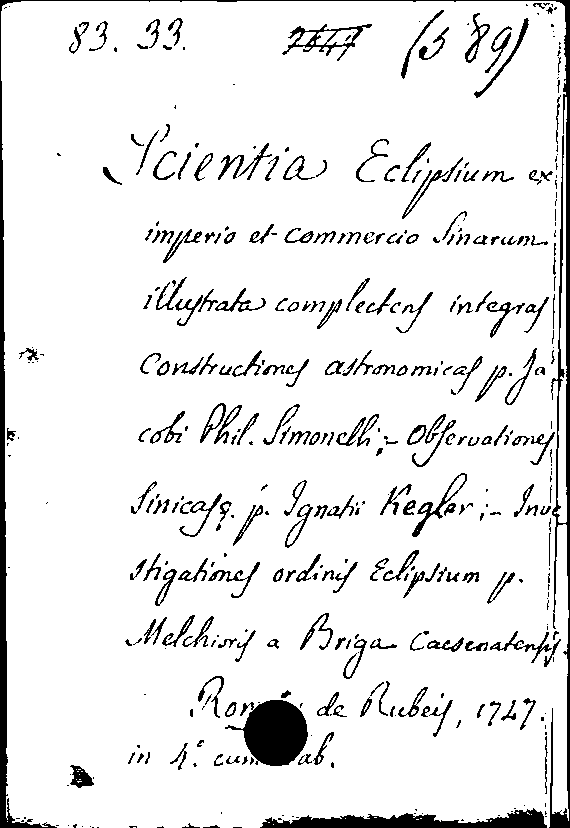 83. 33. 7647 (589)
Scientia Eclipsium ex
imperio et commercio Sinarum
illustrata complectens integras
Constructiones astronomicas p. Ja
cobi Phil. Simonelli;- Observationes
Sinicasq. p. Ignatii Kegler;- Inve
stigationes ordinis Eclipsium p.
Melchioris a Briga Caesenatensis.
de Rubeis, 1747.
in 4.°